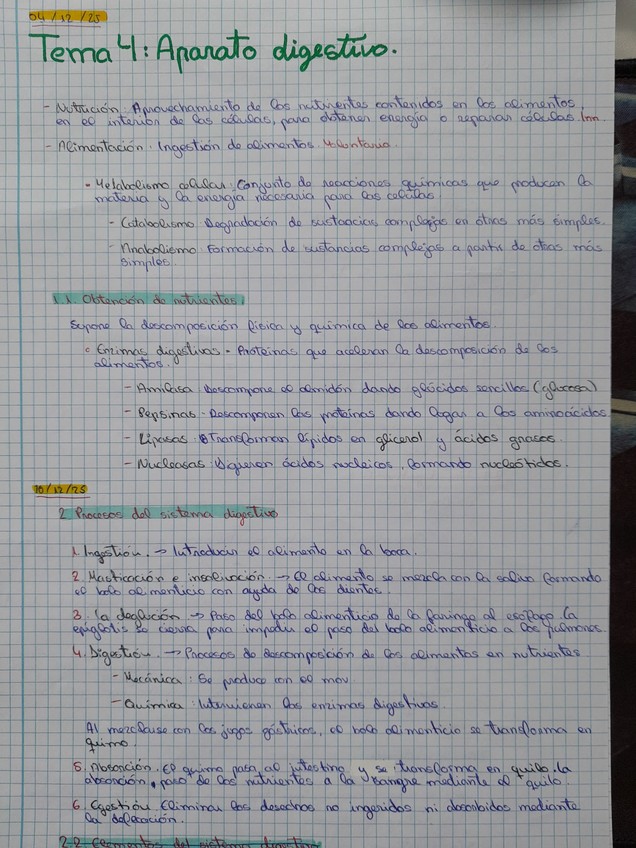 04/12/25
Tema 4: Aparato digestivo.
- Nutrición: Aprovechamiento de los nutrientes contenidos en los alimentos,
en el interior de las células, para obtener energía o reparar células. Inn.
- Alimentación: Ingestión de alimentos. Voluntario.
- Metabolismo celular: Conjunto de reacciones químicas que producen la
materia y la energía necesaria para las células.
- Catabolismo: Degradación de sustancias complejas en otras más simples.
- Anabolismo: Formación de sustancias complejas a partir de otras más
simples.
1.1. Obtención de nutrientes.
Supone la descomposición física y química de los alimentos.
• Enzimas digestivas - Proteínas que aceleran la descomposición de los
alimentos.
- Amilasa: Descompone el almidón dando glúcidos sencillos (glucosa)
- Pepsinas: Descomponen las proteínas dando lugar a los aminoácidos.
- Lipasas: Transforman lípidos en glicerol y ácidos grasos.
- Nucleasas: Digieren ácidos nucleicos, formando nucleótidos.
10/12/25
2 Procesos del sistema digestivo
1. Ingestión. → Introducir el alimento en la boca.
2. Masticación e insalivación. → El alimento se mezcla con la saliva formando
el bolo alimenticio con ayuda de los dientes.
3. La deglución → Paso del bolo alimenticio de la faringe al esófago. La
epiglotis se cierra para impedir el paso del bolo alimenticio a los pulmones.
4. Digestión. → Procesos de descomposición de los alimentos en nutrientes
- Mecánica: Se produce con el mov.
- Química: Intervienen las enzimas digestivas.
Al mezclarse con los jugos gástricos, el bolo alimenticio se transforma en
quimo.
5. Absorción. El quimo pasa al intestino y se transforma en quilo. la
absorción, paso de los nutrientes a la sangre mediante el quilo.
6. Egestión. Eliminar los desechos no ingeridos ni absorbidos mediante
la defecación.
2.2. del sistema digestivo